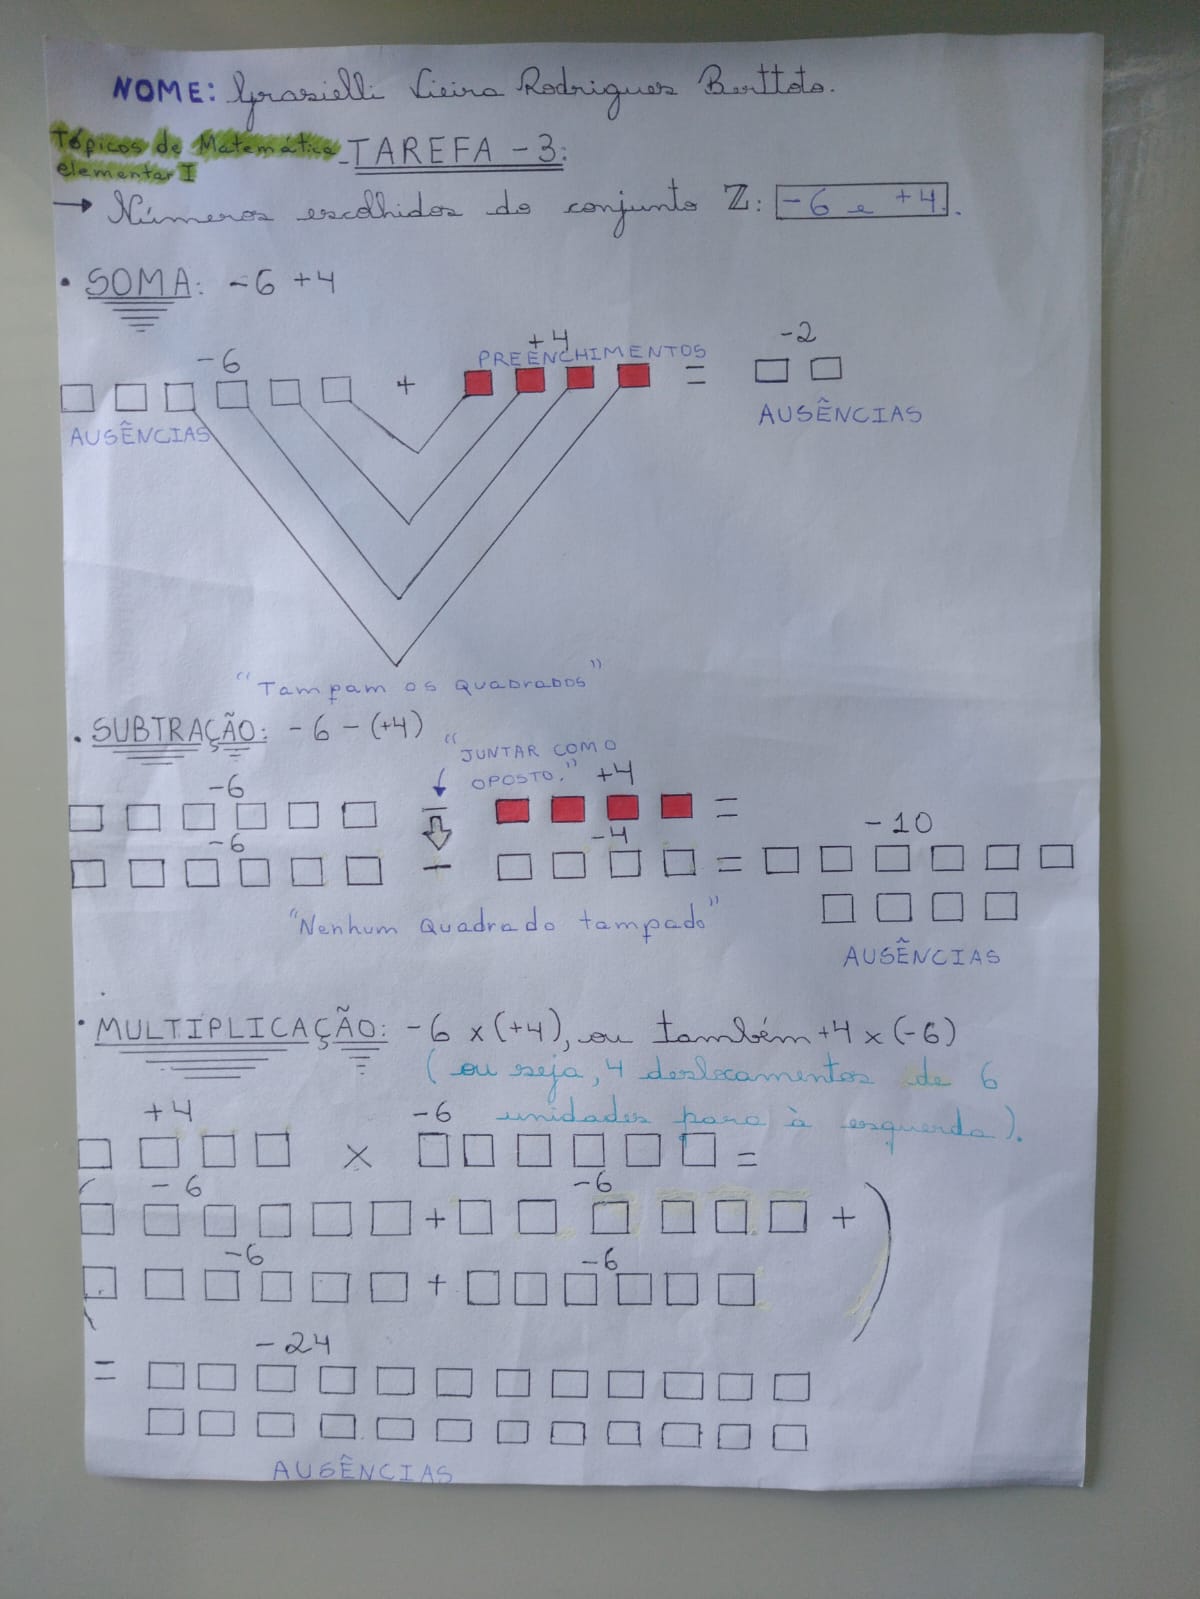 NOME: Grasielli Vieira Rodrigues Berttoto.
Tópicos de Matemática elementar I - TAREFA - 3:
→ Números escolhidos do conjunto ℤ: -6 e +4.
• SOMA: -6 +4
-6 +4 -2
PREENCHIMENTOS
+ =
AUSÊNCIAS AUSÊNCIAS
"Tampam os quadrados"
• SUBTRAÇÃO: -6 - (+4)
"JUNTAR COM O
OPOSTO." +4
-6
- =
-6 -4 -10
+ =
"Nenhum quadrado tampado"
AUSÊNCIAS
• MULTIPLICAÇÃO: -6 x (+4), ou também +4 x (-6)
(ou seja, 4 deslocamentos de 6
unidades para à esquerda).
+4 -6
x =
-6 -6
( + +
-6 -6
+ )
-24
=
AUSÊNCIAS